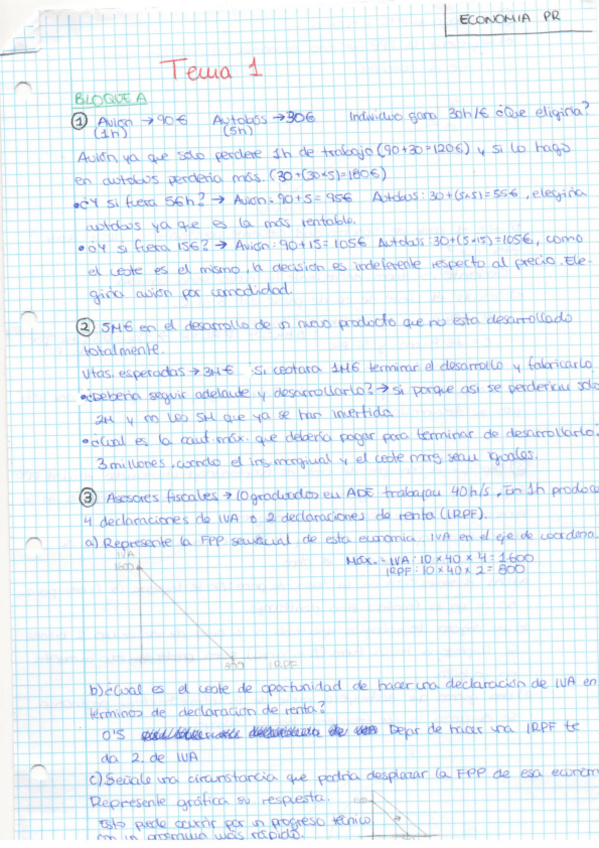 ECONOMIA PR
Tema 1
BLOQUE A
① Avion → 90€ Autobús → 30€ Individuo gana 30h/€ ¿Que eligiria?
(1h) (5h)
Avión, ya que solo perdere 1h de trabajo (90+30=120€) y si lo hago
en autobus perderia más. (30+(30×5)=180€)
• ¿Y si fuera 5€h? → Avion: 90+5=95€ Autobus: 30+(5×5)=55€, elegiria
autobus ya que es la más rentable.
• ¿Y si fuera 15€? → Avion: 90+15=105€ Autobus: 30+(5×15)=105€, como
el coste es el mismo, la decisión es indeferente respecto al precio. Ele-
giria avión por comodidad.
② 5M€ en el desarrollo de un nuevo producto que no esta desarrollado
totalmente.
Vtas. esperadas → 3M€ Si costara 1M€ terminar el desarrollo y fabricarlo
• ¿Deberia seguir adelante y desarrollarlo? → si porque asi se perderian solo
2M y no los 5M que ya se han invertido
• ¿Cual es la cant. máx. que debería pagar para terminar de desarrollarlo?
3 millones, cuando el ing marginal y el coste marg sean iguales.
③ Asesores fiscales → 10 graduados en ADE trabajan 40h/s, En 1h produce
4 declaraciones de IVA o 2 declaraciones de renta (IRPF).
a) Represente la FPP semanal de esta economia. IVA en el eje de coordena.
Máx. - IVA: 10×40×4=1600
IRPF: 10×40×2=800
IVA
1600
800 IRPF
b) ¿Cual es el coste de oportunidad de hacer una declaración de IVA en
términos de declaración de renta?
0'5 Dejar de hacer una IRPF te
da 2 de IVA
c) Señale una circunstancia que podria desplazar la FPP de esa econom
Represente gráfica su respuesta.
Esto puede ocurrir por un progreso técnico
más rápido.